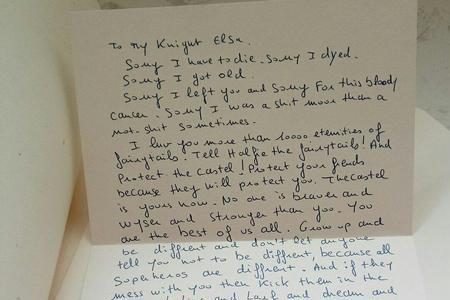 To my Knight Elsa.
Sorry I have to die. Sorry I dyed.
Sorry I got old.
Sorry I left you and sorry For this bloody
cancer. Sorry I was a shit moor than a
not-shit sometimes.
I luv you more than 10000 etemities of
fairytails. Tell Halfie the fairytails! And
Protect the castel! Protect your fiends
because they will protect you. The castel
is yours now. No one is braver and
wyser and stronger than you. You
are the best of us all. Grow up and
be diffrent and don't let anyone
tell you not to be diffrent, because all
Superheros are diffrent. And if they
mess with you then Kick them in the
and Larf and dream and